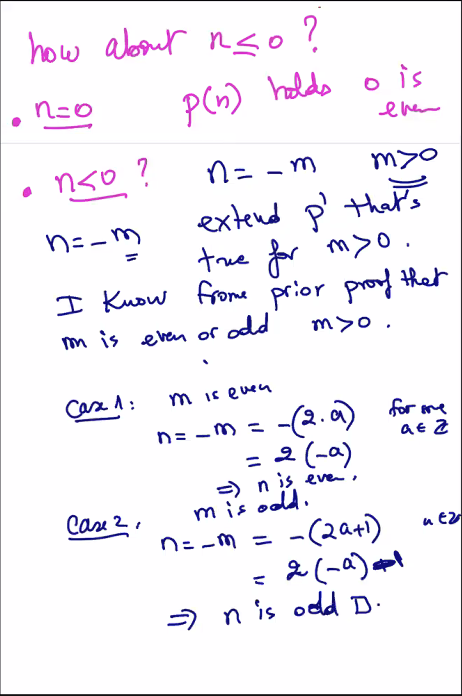 how about n ≤ 0 ?
• n=0 P(n) holds 0 is even
• n<0 ? n = - m m>0
n = - m extend P that's
true for m>0.
I Know frome prior proof that
m is even or odd m>0.
Case 1: m is even
n = - m = -(2.a) for some a∈ℤ
= 2(-a)
⇒ n is even.
Case 2, m is odd.
n = - m = -(2a+1) a∈ℤ
= 2(-a) -1
⇒ n is odd □.